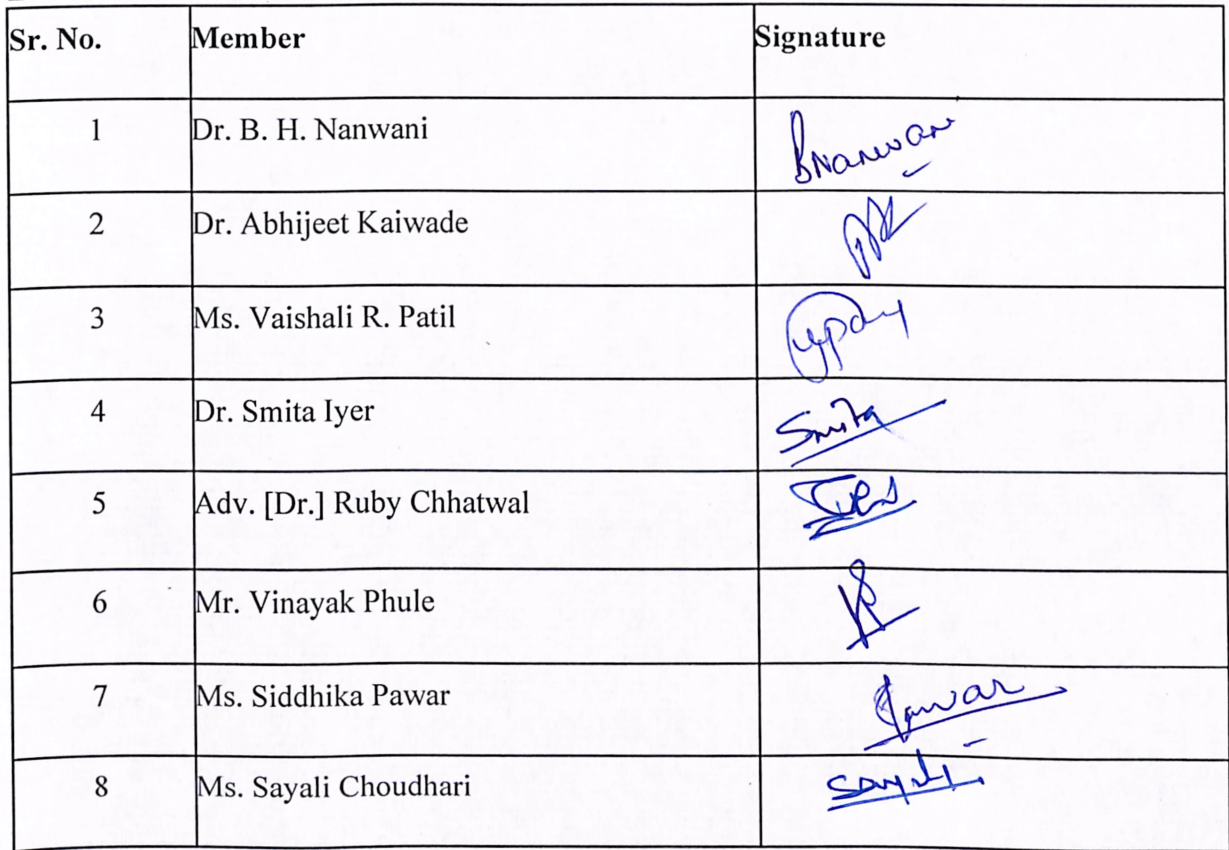 Sr. No. Member Signature
1 Dr. B. H. Nanwani Bnanwani
2 Dr. Abhijeet Kaiwade
3 Ms. Vaishali R. Patil
4 Dr. Smita Iyer Smita
5 Adv. [Dr.] Ruby Chhatwal
6 Mr. Vinayak Phule
7 Ms. Siddhika Pawar Pawar
8 Ms. Sayali Choudhari Sayali